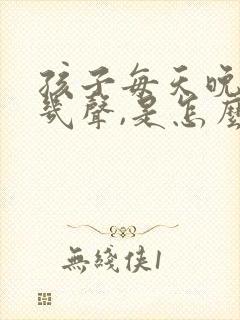 孩子每天晚
幾聲,是怎麼
無綫俠1